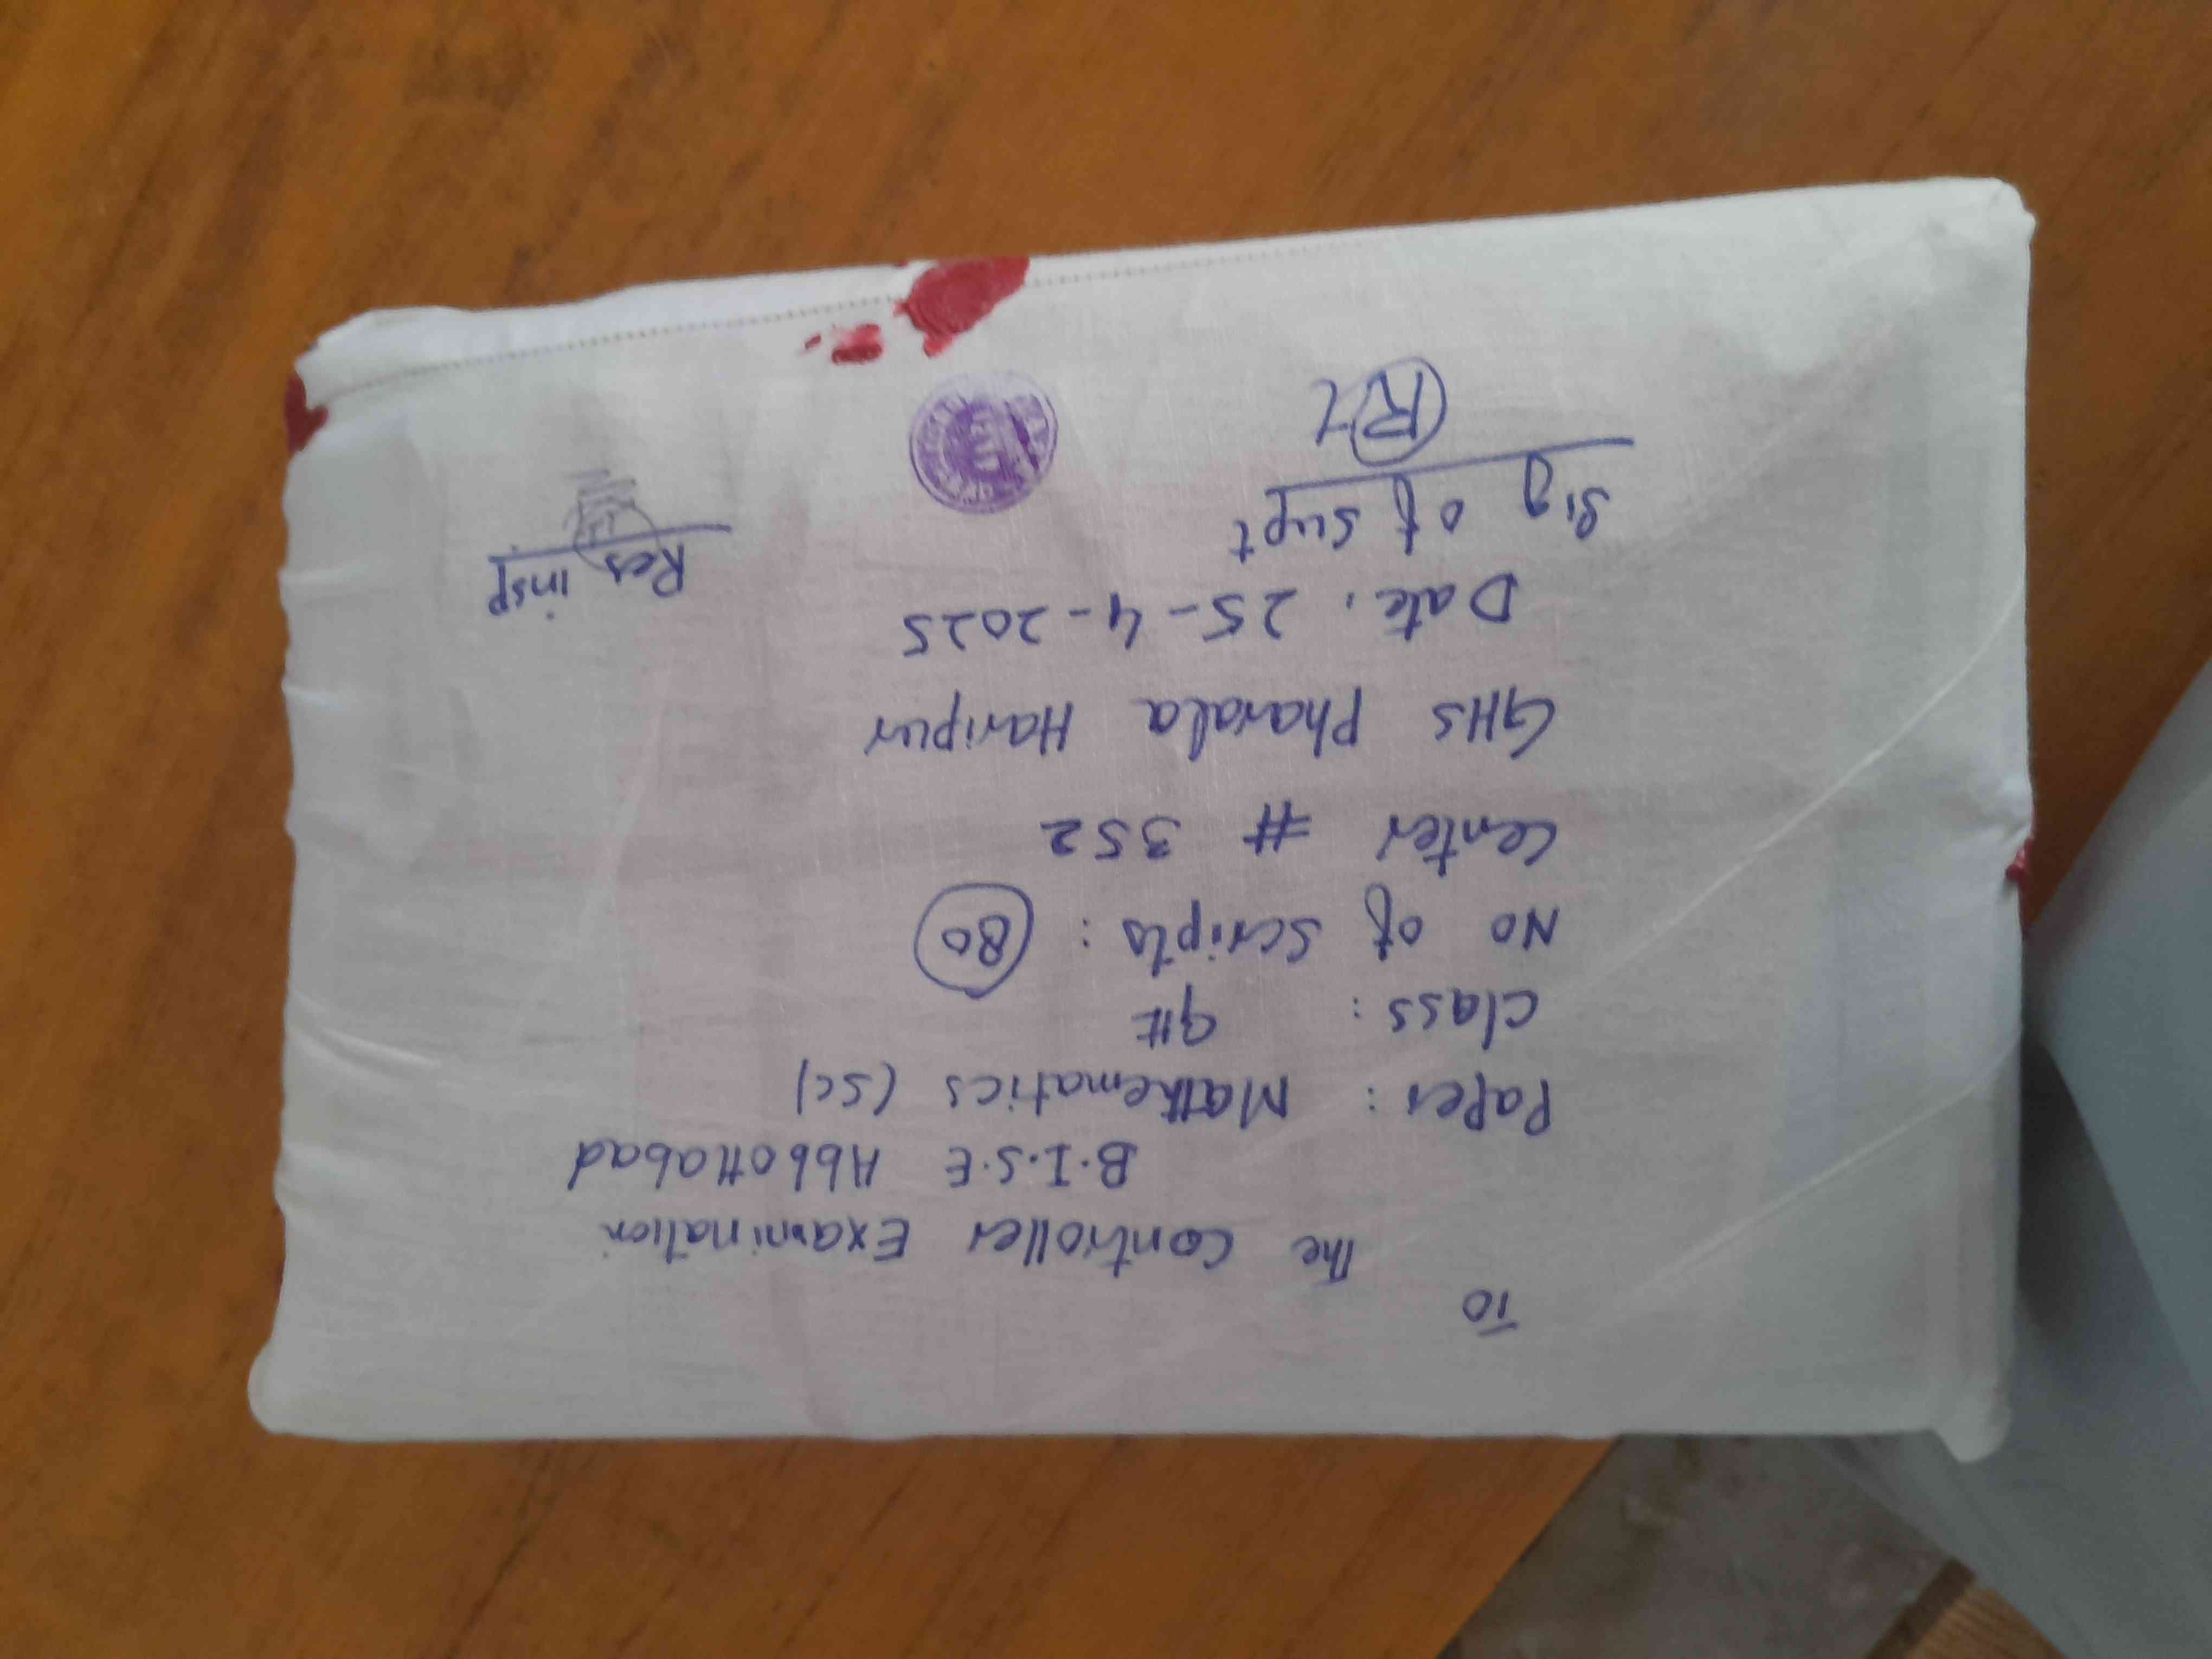 To
The Controller Examination
B.I.S.E Abbottabad
Paper: Mathematics (Sc)
Class: 9th
No of Scripts: 80
Center # 352
GHS Pharala Haripur
Date. 25-4-2025
Sig of Supt
Res insp